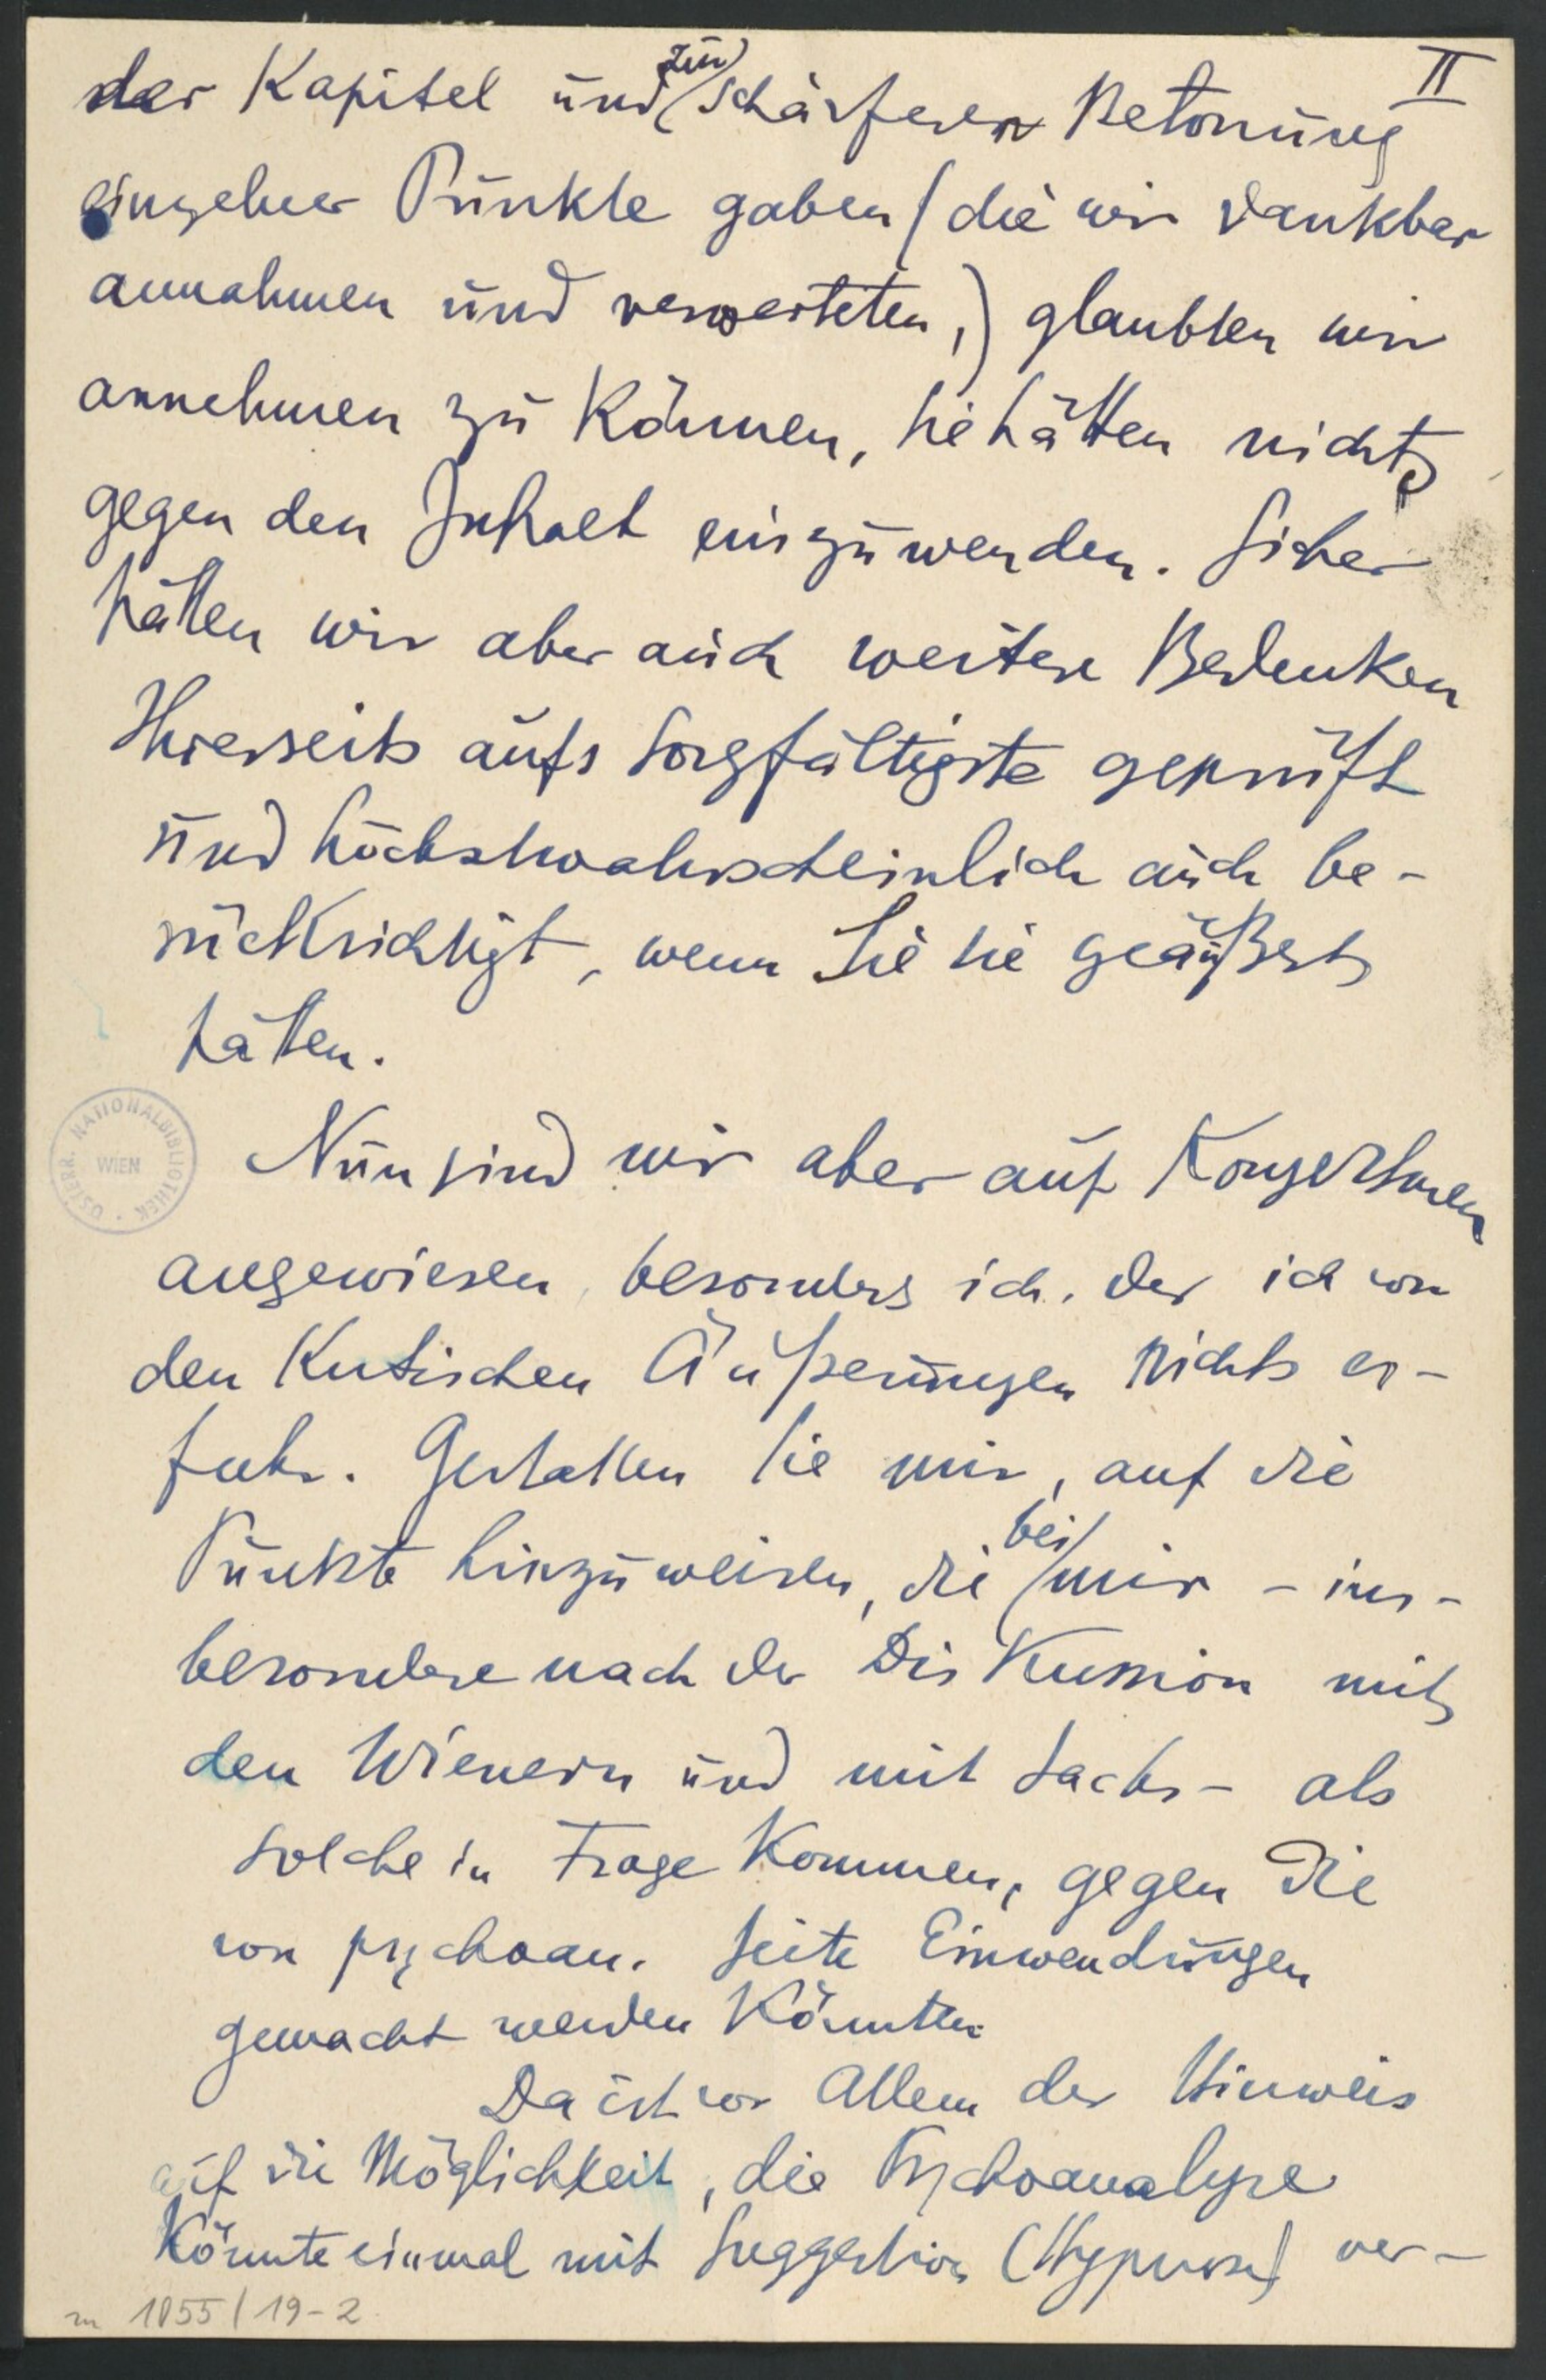 II
der Kapitel und zur schärferen Betonung
einzelner Punkte gaben (die wir dankbar
annahmen und verwerteten,) glaubten wir
annehmen zu können, Sie hätten nichts
gegen den Inhalt einzuwenden. Sicher
hätten wir aber auch weitere Bedenken
Ihrerseits aufs sorgfältigste geprüft
und höchstwahrscheinlich auch be-
rücksichtigt, wenn Sie sie geäußert
hätten.
Nun sind wir aber auf
angewiesen, besonders ich, der ich von
den kritischen Äußerungen nichts er-
fuhr. Gestatten Sie mir, auf die
Punkte hinzuweisen, die bei mir - ins-
besondere nach der Diskussion mit
den Wienern und mit Sachs - als
solche in Frage kommen, gegen die
von psychoan. Seite Einwendungen
gemacht werden könnten.
Da ist vor Allem der Hinweis
auf die Möglichkeit, die Psychoanalyse
könnte einmal mit Suggestion (Hypnose) ver-
ÖSTERR. NATIONALBIBLIOTHEK WIEN
1055/19-2